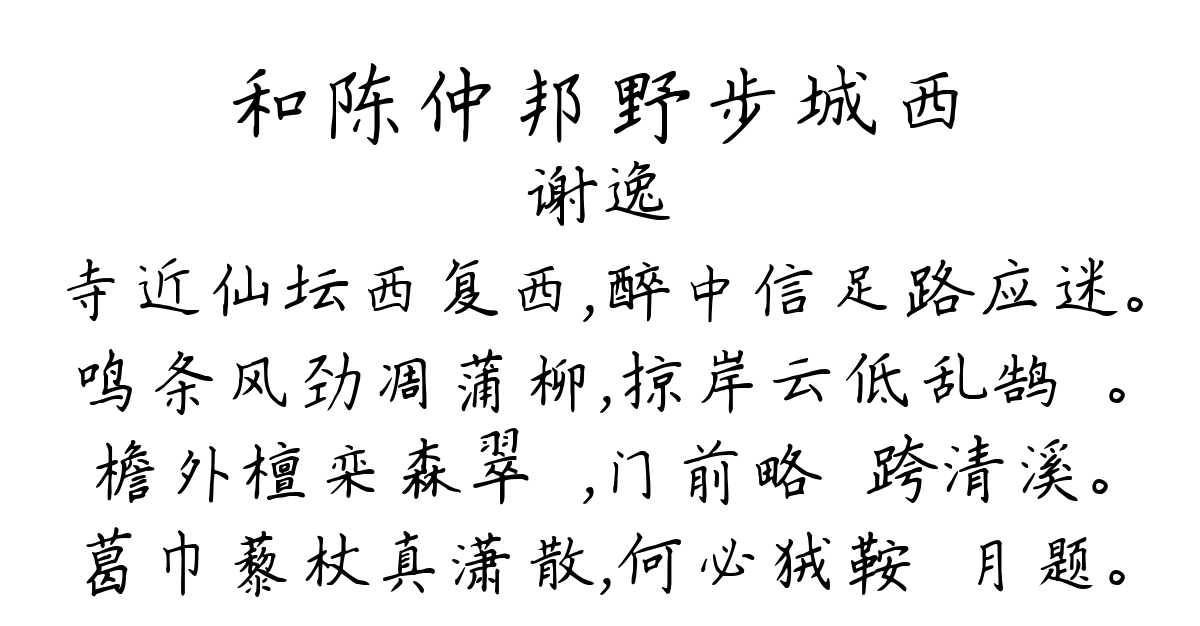 和陈仲邦野步城西
谢逸
寺近仙坛西复西,醉中信足路应迷。
鸣条风劲凋蒲柳,掠岸云低乱鹄 。
檐外檀栾森翠 ,门前略 跨清溪。
葛巾藜杖真潇散,何必狨鞍 月题。